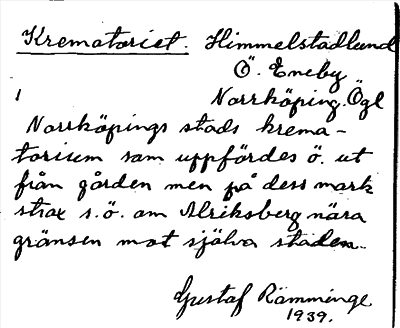 Krematoriet. Himmelstadlund
Ö. Eneby
1 Norrköping. Ögl
Norrköpings stads krema-
torium som uppfördes ö. ut
från gården men på dess mark
strax s.ö. om Alriksberg nära
gränsen mot själva staden.
Gustaf Ramminge
1939.